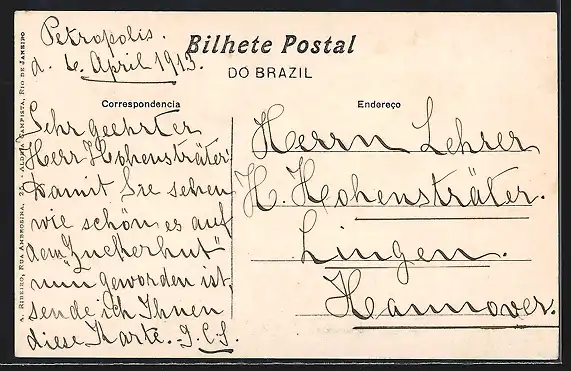 Petropolis.
d. 6. April 1913.
Bilhete Postal
DO BRAZIL
Correspondencia
Endereço
Sehr geehrter
Herr Hohensträter!
Damit Sie sehen
wie schön es auf
dem "Zuckerhut"
nun geworden ist,
sende ich Ihnen
diese Karte. J.C.S.
Herrn Lehrer
H. Hohensträter.
Lingen.
Hannover.
A. RIBEIRO, RUA AMBROSINA, 25 - ALDEIA CAMPISTA, RIO DE JANEIRO